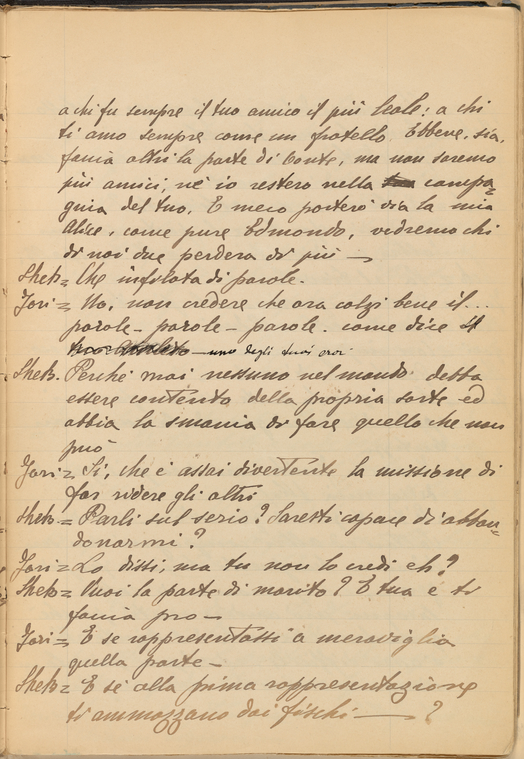 a chi fu sempre il tuo amico il più leale: a chi
ti amo sempre come un fratello. Ebbene, sia,
faccia altri la parte di Conte, ma non saremo
più amici, né io restero nella compa=
gnia del tuo. E meco porterò via la mia
Alice, come pure Edmondo, vedremo chi
di noi due perdera di più —
Shek= Che infilata di parole.
Jori= No, non credere che ora colzi bene il...
parole - parole - parole. come dice il
uno degli tuoi eroi
Shek. Perché mai nessuno nel mondo debba
essere contento della propria sorte ed
abbia la smania di fare quello che non
può
Jori= Si, che è assai divertente la missione di
far ridere gli altri
Shek= Parli sul serio? Saresti capace di abban=
donarmi?
Jori= Lo dissi, ma tu non lo credi eh?
Shek= Vuoi la parte di marito? È tua e ti
faccia pro —
Jori= E se rappresentassi a meraviglia
quella parte —
Shek= E se alla prima rappresentazione
ti ammazzano dai fischi — ?